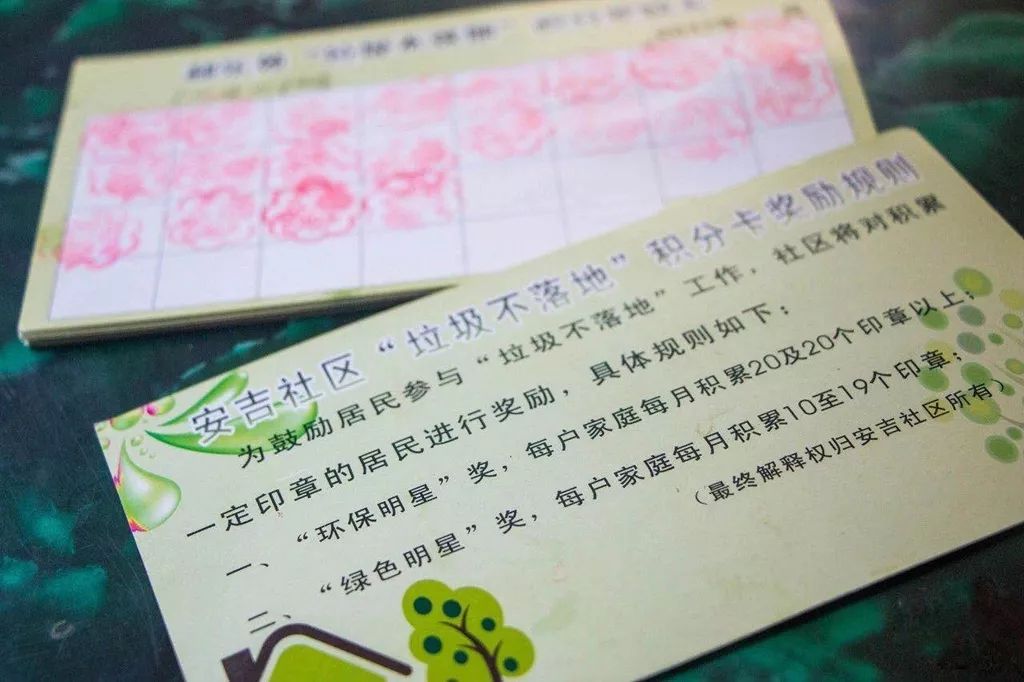 安吉社区“垃圾不落地”积分卡奖励规则
为鼓励居民参与“垃圾不落地”工作，社区将对积累
一定印章的居民进行奖励，具体规则如下：
一、“环保明星”奖，每户家庭每月积累20及20个印章以上；
二、“绿色明星”奖，每户家庭每月积累10至19个印章；
（最终解释权归安吉社区所有）